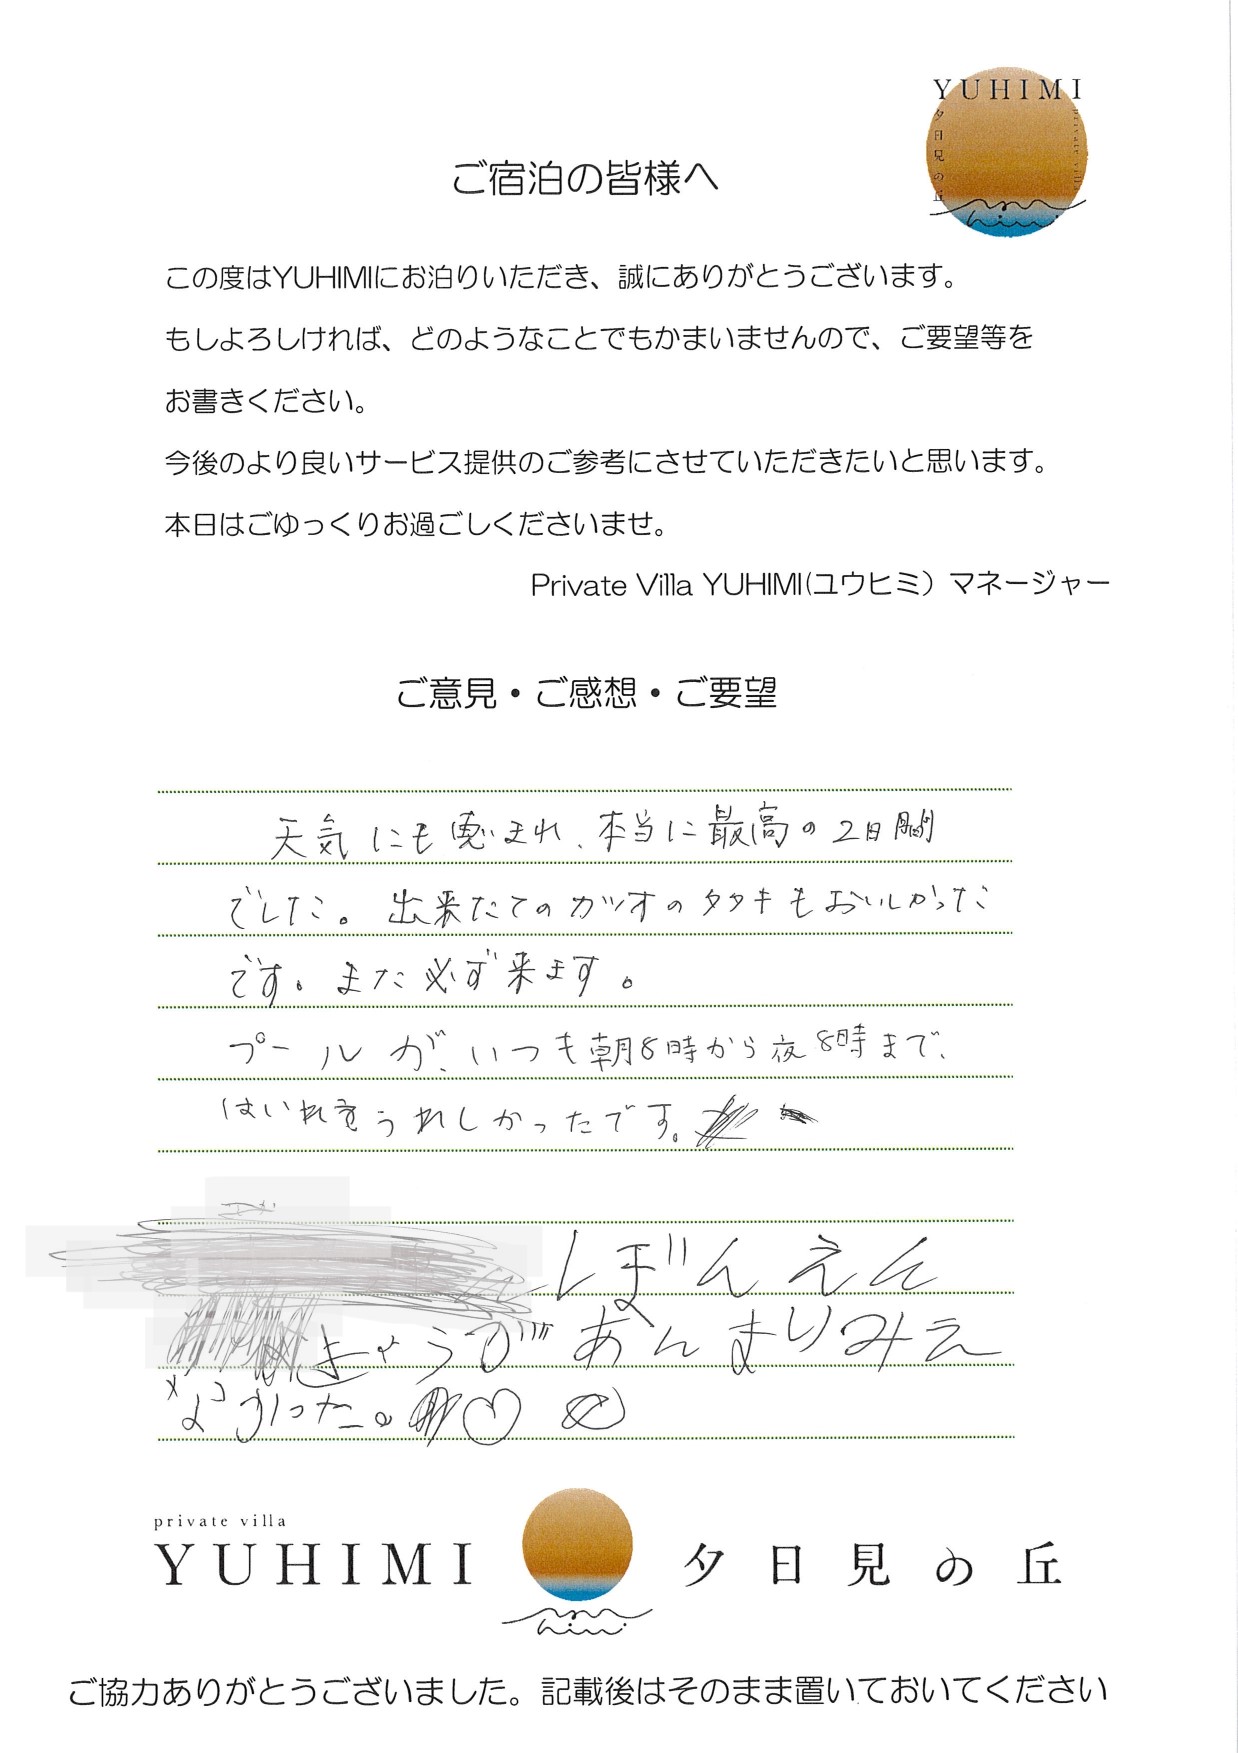 YUHIMI
夕日見の丘
private villa
ご宿泊の皆様へ
この度はYUHIMIにお泊りいただき、誠にありがとうございます。
もしよろしければ、どのようなことでもかまいませんので、ご要望等を
お書きください。
今後のより良いサービス提供のご参考にさせていただきたいと思います。
本日はごゆっくりお過ごしくださいませ。
Private Villa YUHIMI(ユウヒミ）マネージャー
ご意見・ご感想・ご要望
天気にも恵まれ、本当に最高の2日間
でした。出来たてのカツオのタタキもおいしかった
です。また必ず来ます。
プールが、いつも朝8時から夜8時まで、
はいれてうれしかったです。
しぼんえん
きょうがあんまりみえ
なかった。♡
private villa
YUHIMI 夕日見の丘
ご協力ありがとうございました。記載後はそのまま置いておいてください